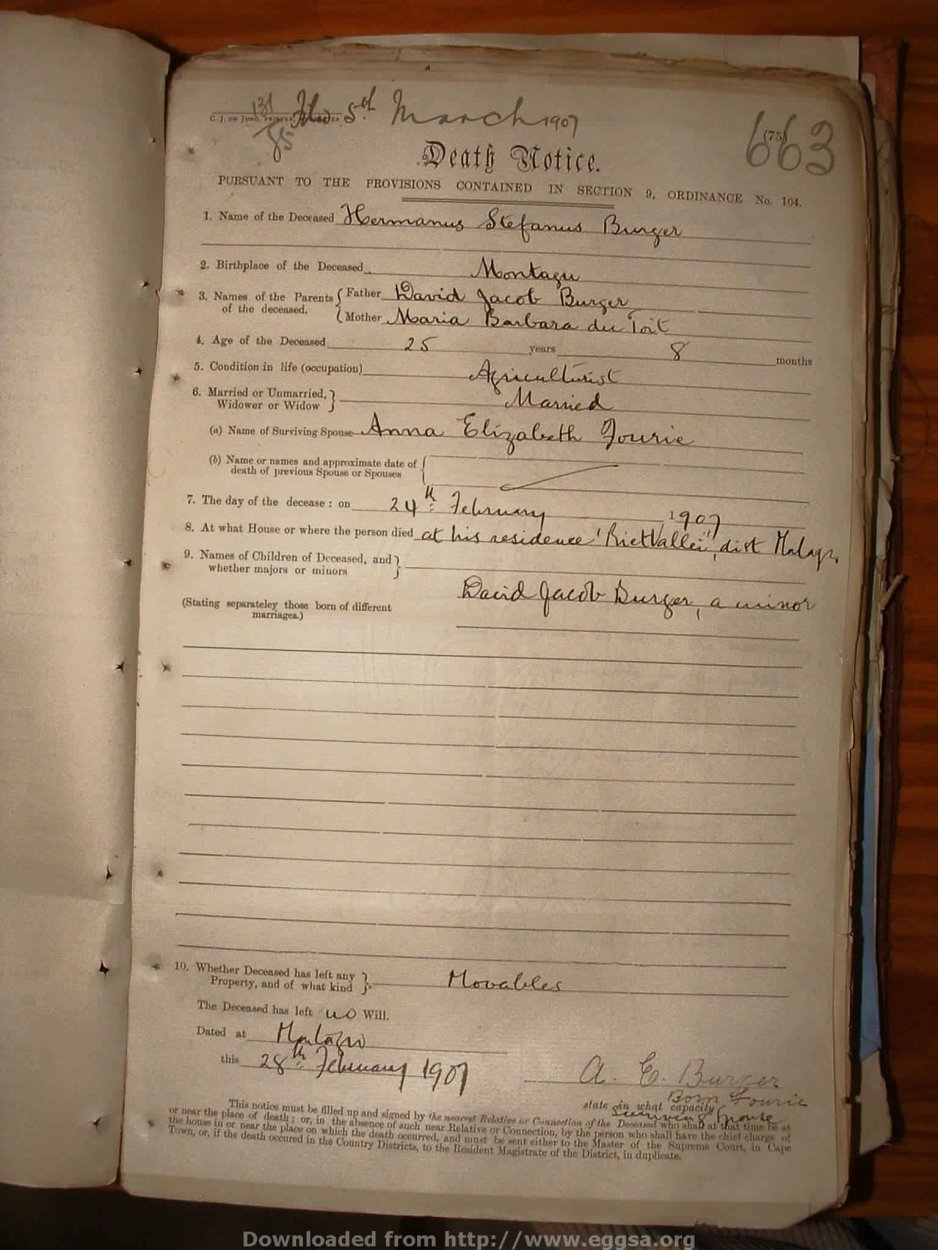 131
85
5th March 1907
663
(75)
C. J. DE JONG,
Death Notice.
PURSUANT TO THE PROVISIONS CONTAINED IN SECTION 9, ORDINANCE No. 104.
1. Name of the Deceased Hermanus Stefanus Burger
2. Birthplace of the Deceased Montagu
3. Names of the Parents of the deceased. Father David Jacob Burger
Mother Maria Barbara du Toit
4. Age of the Deceased 25 years 8 months
5. Condition in life (occupation) Agriculturist
6. Married or Unmarried, Widower or Widow Married
(a) Name of Surviving Spouse Anna Elizabeth Fourie
(b) Name or names and approximate date of
death of previous Spouse or Spouses
7. The day of the decease : on 24th February 1907
8. At what House or where the person died at his residence 'RietVallei", dist Malagu
9. Names of Children of Deceased, and
whether majors or minors
David Jacob Burger, a minor
(Stating separateley those born of different
marriages.)
10. Whether Deceased has left any
Property, and of what kind Movables
The Deceased has left no Will.
Dated at Montagu
this 28th February 1907
A. E. Burger
Born Fourie
state in what capacity
Surviving Spouse
This notice must be filled up and signed by the nearest Relative or Connection of the Deceased who shall at that time be at
or near the place of death ; or, in the absence of such near Relative or Connection, by the person who shall have the chief charge of
the house in or near the place on which the death occurred, and must be sent either to the Master of the Supreme Court, in Cape
Town, or, if the death occured in the Country Districts, to the Resident Magistrate of the District, in duplicate.
Downloaded from http://www.eggsa.org